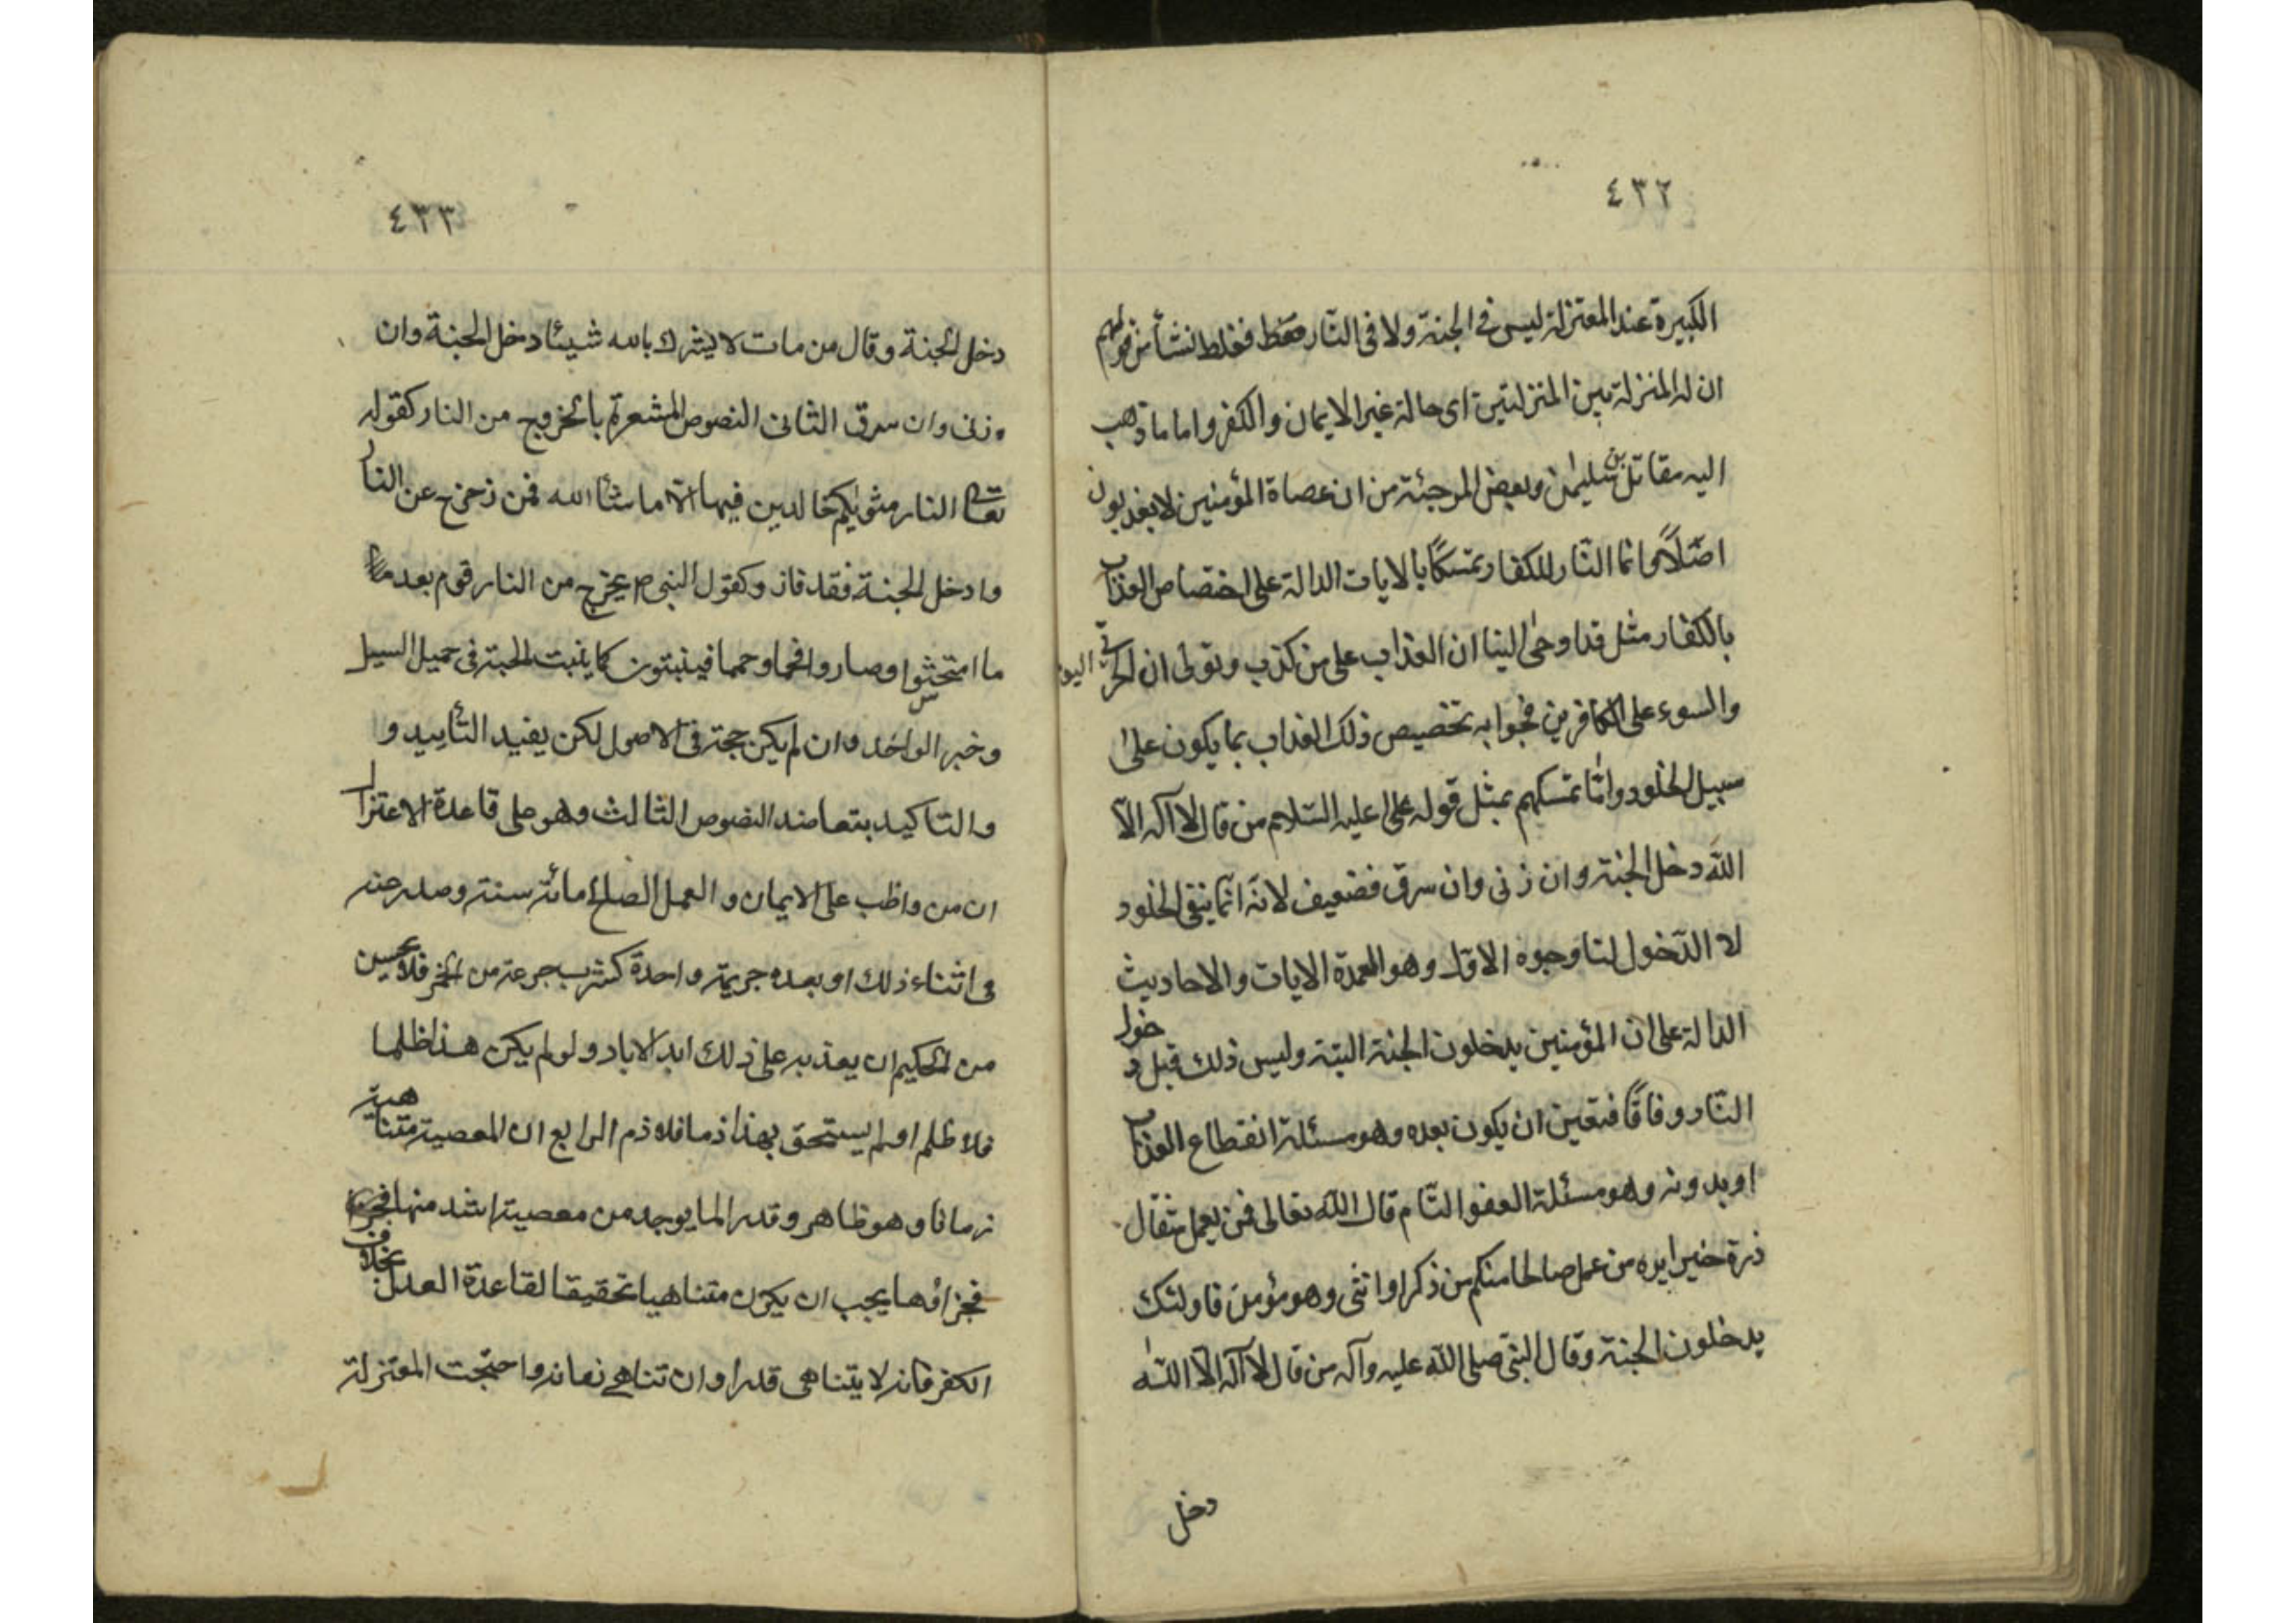 ٤٣٢
الكبيرة عند المعتزلة ليس في الجنة ولا في النار فقط فغلط نشأ من قولهم
ان له المنزلة بين المنزلتين اى حالة غير الايمان والكفر واما ما ذهب
اليه مقاتل بن سليمن وبعض المرجئة من ان عصاة المؤمنين لا يعذبون
اصلاً وانما النّار للكفار تمسكاً بالايات الدالة على اختصاص العذاب
بالكفار مثل قد اوحى الينا ان العذاب على من كذب وتولى ان الخزي اليوم
والسوء على الكافرين فجوابه تخصيص ذلك العذاب بما يكون على
سبيل الخلود وامّا تمسكهم بمثل قوله عليه السّلام من قال لا آله الّا
اللّه دخل الجنة وان زنى وان سرق فضعيف لانّه انّما ينفى الخلود
لا الدّخول لنا وجوه الاوّل وهو العمدة الايات والاحاديث
الدالة على ان المؤمنين يدخلون الجنة البتة وليس ذلك قبل دخول
النّار وفاقاً فتعين ان يكون بعده وهو مسئلة انقطاع العذاب
او بدونه وهو مسئلة العفو التّام قال اللّه تعالى فمن يعمل مثقال
ذرة خيرا يره من عمل صالحا منكم من ذكر او انثى وهو مؤمن فاولئك
يدخلون الجنة وقال النبىّ صلى اللّه عليه وآله من قال لا آله الّا اللّه
دخل
٤٣٣
دخل الجنة وقال من مات لا يشرك بالله شيئا دخل الجنة وان
زنى وان سرق الثانى النصوص المشعرة بالخروج من النار كقوله
تعالى النار مثويكم خالدين فيها الّا ما شاء الله فمن زحزح عن النار
وادخل الجنة فقد فاز وكقول النبى ص يخرج من النار قوم بعد
ما امتحشوا وصاروا فحما وحمما فينبتون كما ينبت الحبة فى حميل السيل
وخبر الواحد وان لم يكن حجة فى الاصول لكن يفيد التأييد و
والتاكيد بتعاضد النصوص الثالث وهو على قاعدة الاعتزال
ان من واظب على الايمان والعمل الصلح مائة سنة وصدر عنه
فى اثناء ذلك او بعده جريمة واحدة كشرب جرعة من الخمر فلا يحسن
من الحكيم ان يعذبه على ذلك ابد الاباد ولو لم يكن هذا ظلما
فلا ظلم او لم يستحق بهذا ذما فلا ذم الرابع ان المعصية متناهية
زمانا وهو ظاهر وقدرا لما يوجد من معصية اشد منها
فجزاؤها يجب ان يكون متناهيا تحقيقا لقاعدة العدل بخلاف
الكفر فانه لا يتناهى قدرا وان تناهى زمانه واحتجت المعتزلة